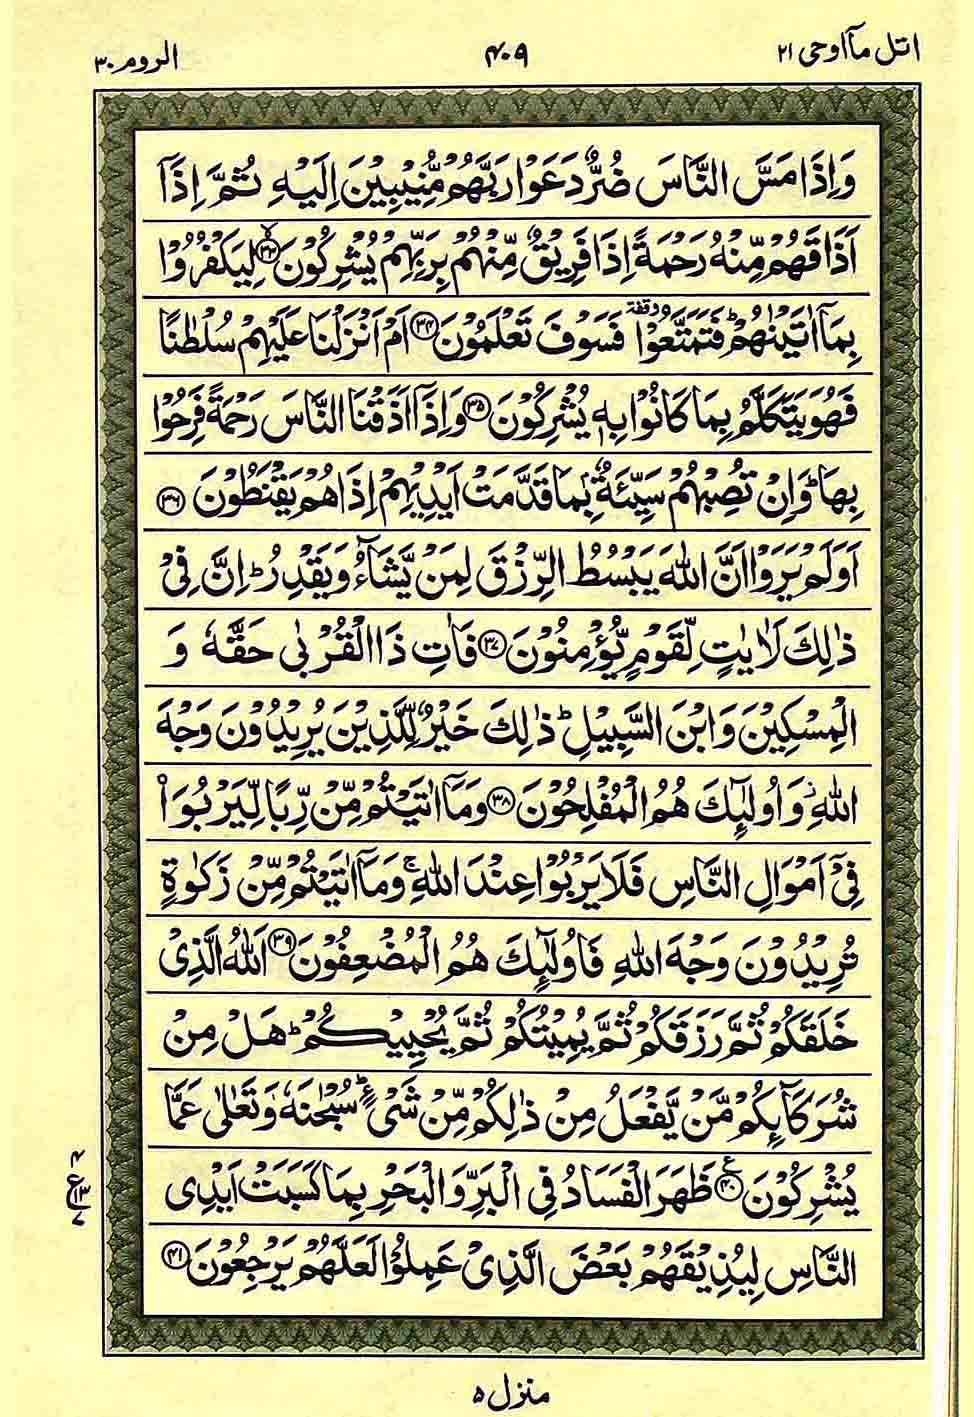 اتل مآ اوحی ۲۱
۴۰۹
الروم ۳۰
وَاِذَا مَسَّ النَّاسَ ضُرٌّ دَعَوْا رَبَّهُمْ مُّنِیْبِیْنَ اِلَیْهِ ثُمَّ اِذَاۤ
اَذَاقَهُمْ مِّنْهُ رَحْمَةً اِذَا فَرِیْقٌ مِّنْهُمْ بِرَبِّهِمْ یُشْرِكُوْنَ ﴿۳۳﴾ۙ لِیَكْفُرُوْا
بِمَاۤ اٰتَیْنٰهُمْ ؕ فَتَمَتَّعُوْا ٙ وقفة فَسَوْفَ تَعْلَمُوْنَ ﴿۳۴﴾ اَمْ اَنْزَلْنَا عَلَیْهِمْ سُلْطٰنًا
فَهُوَ یَتَكَلَّمُ بِمَا كَانُوْا بِهٖ یُشْرِكُوْنَ ﴿۳۵﴾ وَاِذَاۤ اَذَقْنَا النَّاسَ رَحْمَةً فَرِحُوْا
بِهَا ؕ وَاِنْ تُصِبْهُمْ سَیِّئَةٌۢ بِمَا قَدَّمَتْ اَیْدِیْهِمْ اِذَا هُمْ یَقْنَطُوْنَ ﴿۳۶﴾
اَوَلَمْ یَرَوْا اَنَّ اللّٰهَ یَبْسُطُ الرِّزْقَ لِمَنْ یَّشَآءُ وَیَقْدِرُ ؕ اِنَّ فِیْ
ذٰلِكَ لَاٰیٰتٍ لِّقَوْمٍ یُّؤْمِنُوْنَ ﴿۳۷﴾ فَاٰتِ ذَا الْقُرْبٰی حَقَّهٗ وَ
الْمِسْكِیْنَ وَابْنَ السَّبِیْلِ ؕ ذٰلِكَ خَیْرٌ لِّلَّذِیْنَ یُرِیْدُوْنَ وَجْهَ
اللّٰهِ ؗ وَاُولٰٓئِكَ هُمُ الْمُفْلِحُوْنَ ﴿۳۸﴾ وَمَاۤ اٰتَیْتُمْ مِّنْ رِّبًا لِّیَرْبُوَا۠
فِیْۤ اَمْوَالِ النَّاسِ فَلَا یَرْبُوْا عِنْدَ اللّٰهِ ۚ وَمَاۤ اٰتَیْتُمْ مِّنْ زَكٰوةٍ
تُرِیْدُوْنَ وَجْهَ اللّٰهِ فَاُولٰٓئِكَ هُمُ الْمُضْعِفُوْنَ ﴿۳۹﴾ اَللّٰهُ الَّذِیْ
خَلَقَكُمْ ثُمَّ رَزَقَكُمْ ثُمَّ یُمِیْتُكُمْ ثُمَّ یُحْیِیْكُمْ ؕ هَلْ مِنْ
شُرَكَآئِكُمْ مَّنْ یَّفْعَلُ مِنْ ذٰلِكُمْ مِّنْ شَیْءٍ ؕ سُبْحٰنَهٗ وَتَعٰلٰی عَمَّا
یُشْرِكُوْنَ ﴿۴۰﴾ع ظَهَرَ الْفَسَادُ فِی الْبَرِّ وَالْبَحْرِ بِمَا كَسَبَتْ اَیْدِی
۴ ع ۱۳ ۷
النَّاسِ لِیُذِیْقَهُمْ بَعْضَ الَّذِیْ عَمِلُوْا لَعَلَّهُمْ یَرْجِعُوْنَ ﴿۴۱﴾
منزل ۵